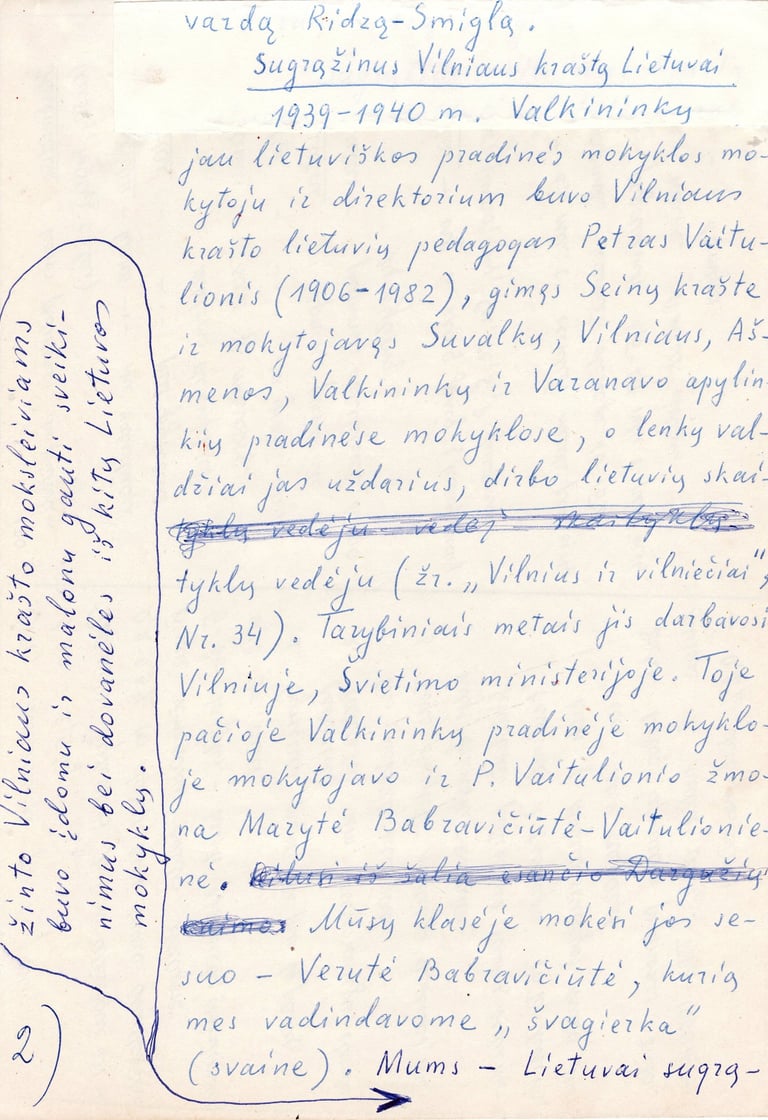 vardą Ridzą-Smiglą.
Sugrąžinus Vilniaus kraštą Lietuvai
1939-1940 m. Valkininkų
jau lietuviškos pradinės mokyklos mo-
kytoju ir direktorium buvo Vilniaus
krašto lietuvių pedagogas Petras Vaitu-
lionis (1906-1982), gimęs Seinų krašte
ir mokytojavęs Suvalkų, Vilniaus, Aš-
menos, Valkininkų ir Varanavo apylin-
kių pradinėse mokyklose, o lenkų val-
džiai jas uždarius, dirbo lietuvių skai-
tyklų vedėju vedėj skaityklų
tyklų vedėju (žr. „Vilnius ir vilniečiai",
Nr. 34). Tarybiniais metais jis darbavosi
Vilniuje, Švietimo ministerijoje. Toje
pačioje Valkininkų pradinėje mokyklo-
je mokytojavo ir P. Vaitulionio žmo-
na Marytė Babravičiūtė-Vaitulionie-
nė. Kilusi iš šalia esančio Dargužių
kaimo. Mūsų klasėje mokėsi jos se-
suo - Verutė Babravičiūtė, kurią
mes vadindavome „švagierka"
(svaine). Mums - Lietuvai sugrą-
žinto Vilniaus krašto moksleiviams
buvo įdomu ir malonu gauti sveiki-
nimus bei dovanėles iš kitų Lietuvos
mokyklų.
2)